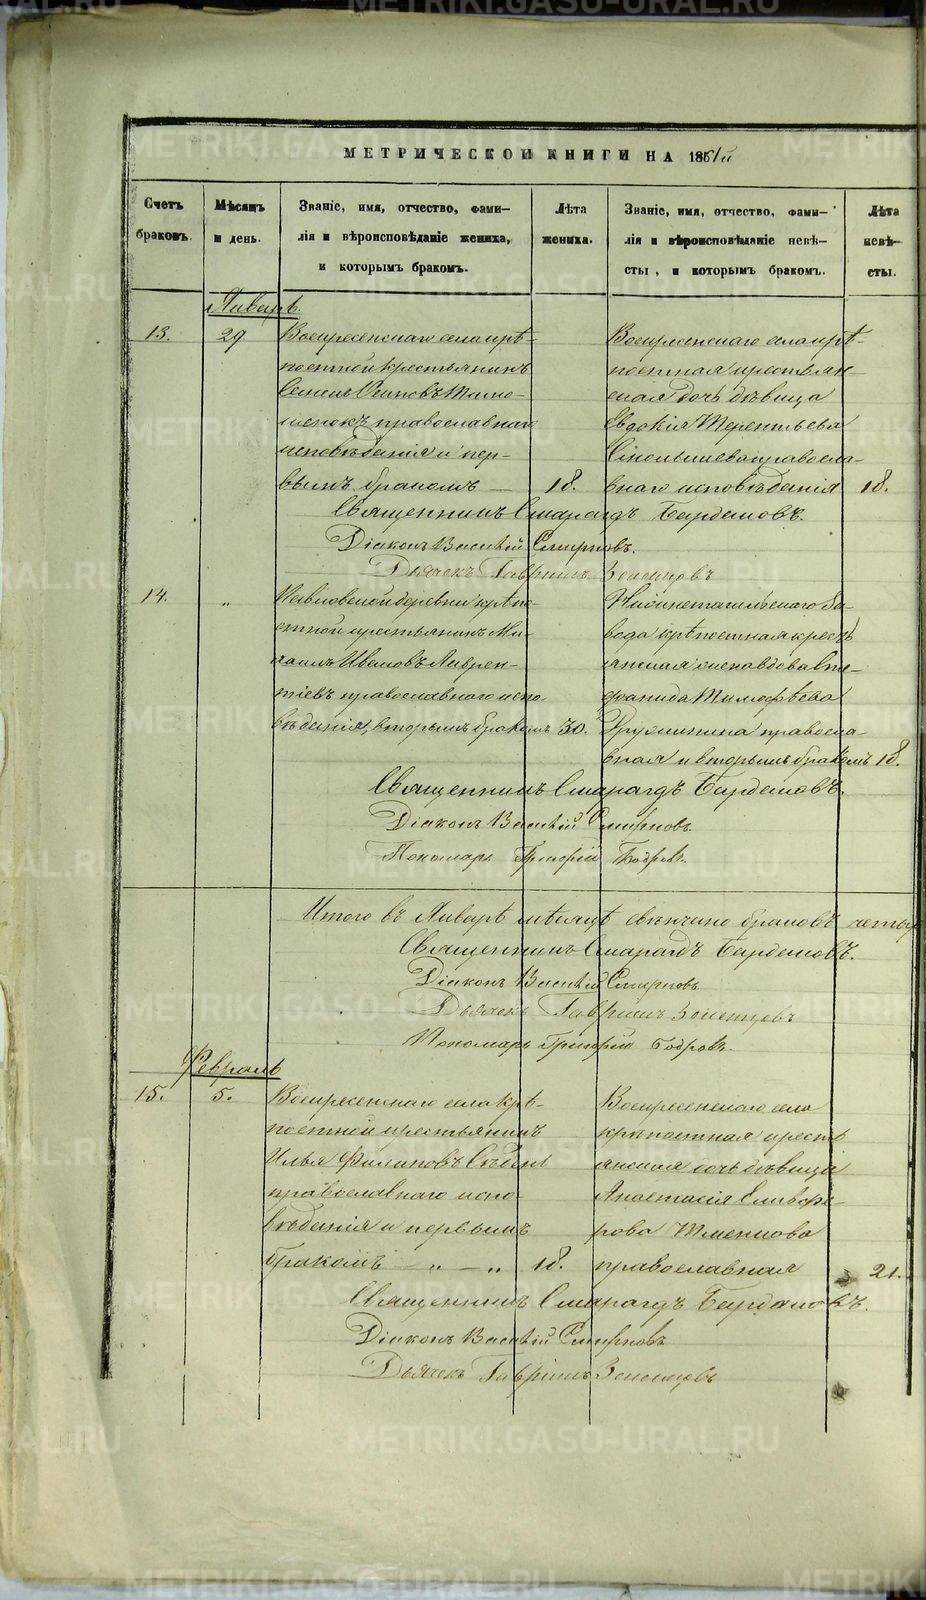 МЕТРИЧЕСКОЙ КНИГИ НА 1861й
Счетъ браковъ.
Мѣсяцъ и день.
Званіе, имя, отчество, фами-
лія и вѣроисповѣданіе жениха,
и которымъ бракомъ.
Лѣта жениха.
Званіе, имя, отчество, фами-
лія и вѣроисповѣданіе невѣ-
сты, и которымъ бракомъ.
Лѣта невѣ-
сты.
Январь.
13.
29
Воскресенскаго села крѣ-
постной крестьянинъ
Осиповъ Тимо-
православнаго
исповѣданія и пер-
вымъ бракомъ
18.
Воскресенскаго села крѣ-
постная крестьян-
ская дочь дѣвица
Евдокія Терентьева
православ-
наго исповѣданія
18.
Священникъ Смарагдъ Бардамовъ.
Діаконъ Василій Смирновъ.
Дьячекъ Гавріилъ
14.
„
Павловской деревни крѣпо-
стной крестьянинъ Ми-
хаилъ Ивановъ Лаврен-
тіевъ православнаго испо-
вѣданія, вторымъ бракомъ
30.
Нижнетагильскаго за-
вода крѣпостная кресть
янская жена вдова Сте-
фанида Тимофѣева
православ-
ная и вторымъ бракомъ
18.
Священникъ Смарагдъ Бардамовъ.
Діаконъ Василій Смирновъ
Пономарь Григорій Бобровъ.
Итого въ Январѣ мѣсяцѣ свѣнчано браковъ четыр
Священникъ Смарагдъ Бардамовъ.
Діаконъ Василій Смирновъ
Дьячекъ Гавріилъ
Пономарь Григорій Бобровъ.
Февраль
15.
5.
Воскресенскаго села крѣ-
постной крестьянинъ
Илья Филиповъ
православнаго испо-
вѣданія и первымъ
бракомъ — „ — „
18.
Воскресенскаго села
крѣпостная кресть
янская дочь дѣвица
Анастасія Елиѳе-
рова
православная
21.
Священникъ Смарагдъ Бардамовъ.
Діаконъ Василій Смирновъ
Дьячекъ Гавріилъ
METRIKI.GASO-URAL.RU